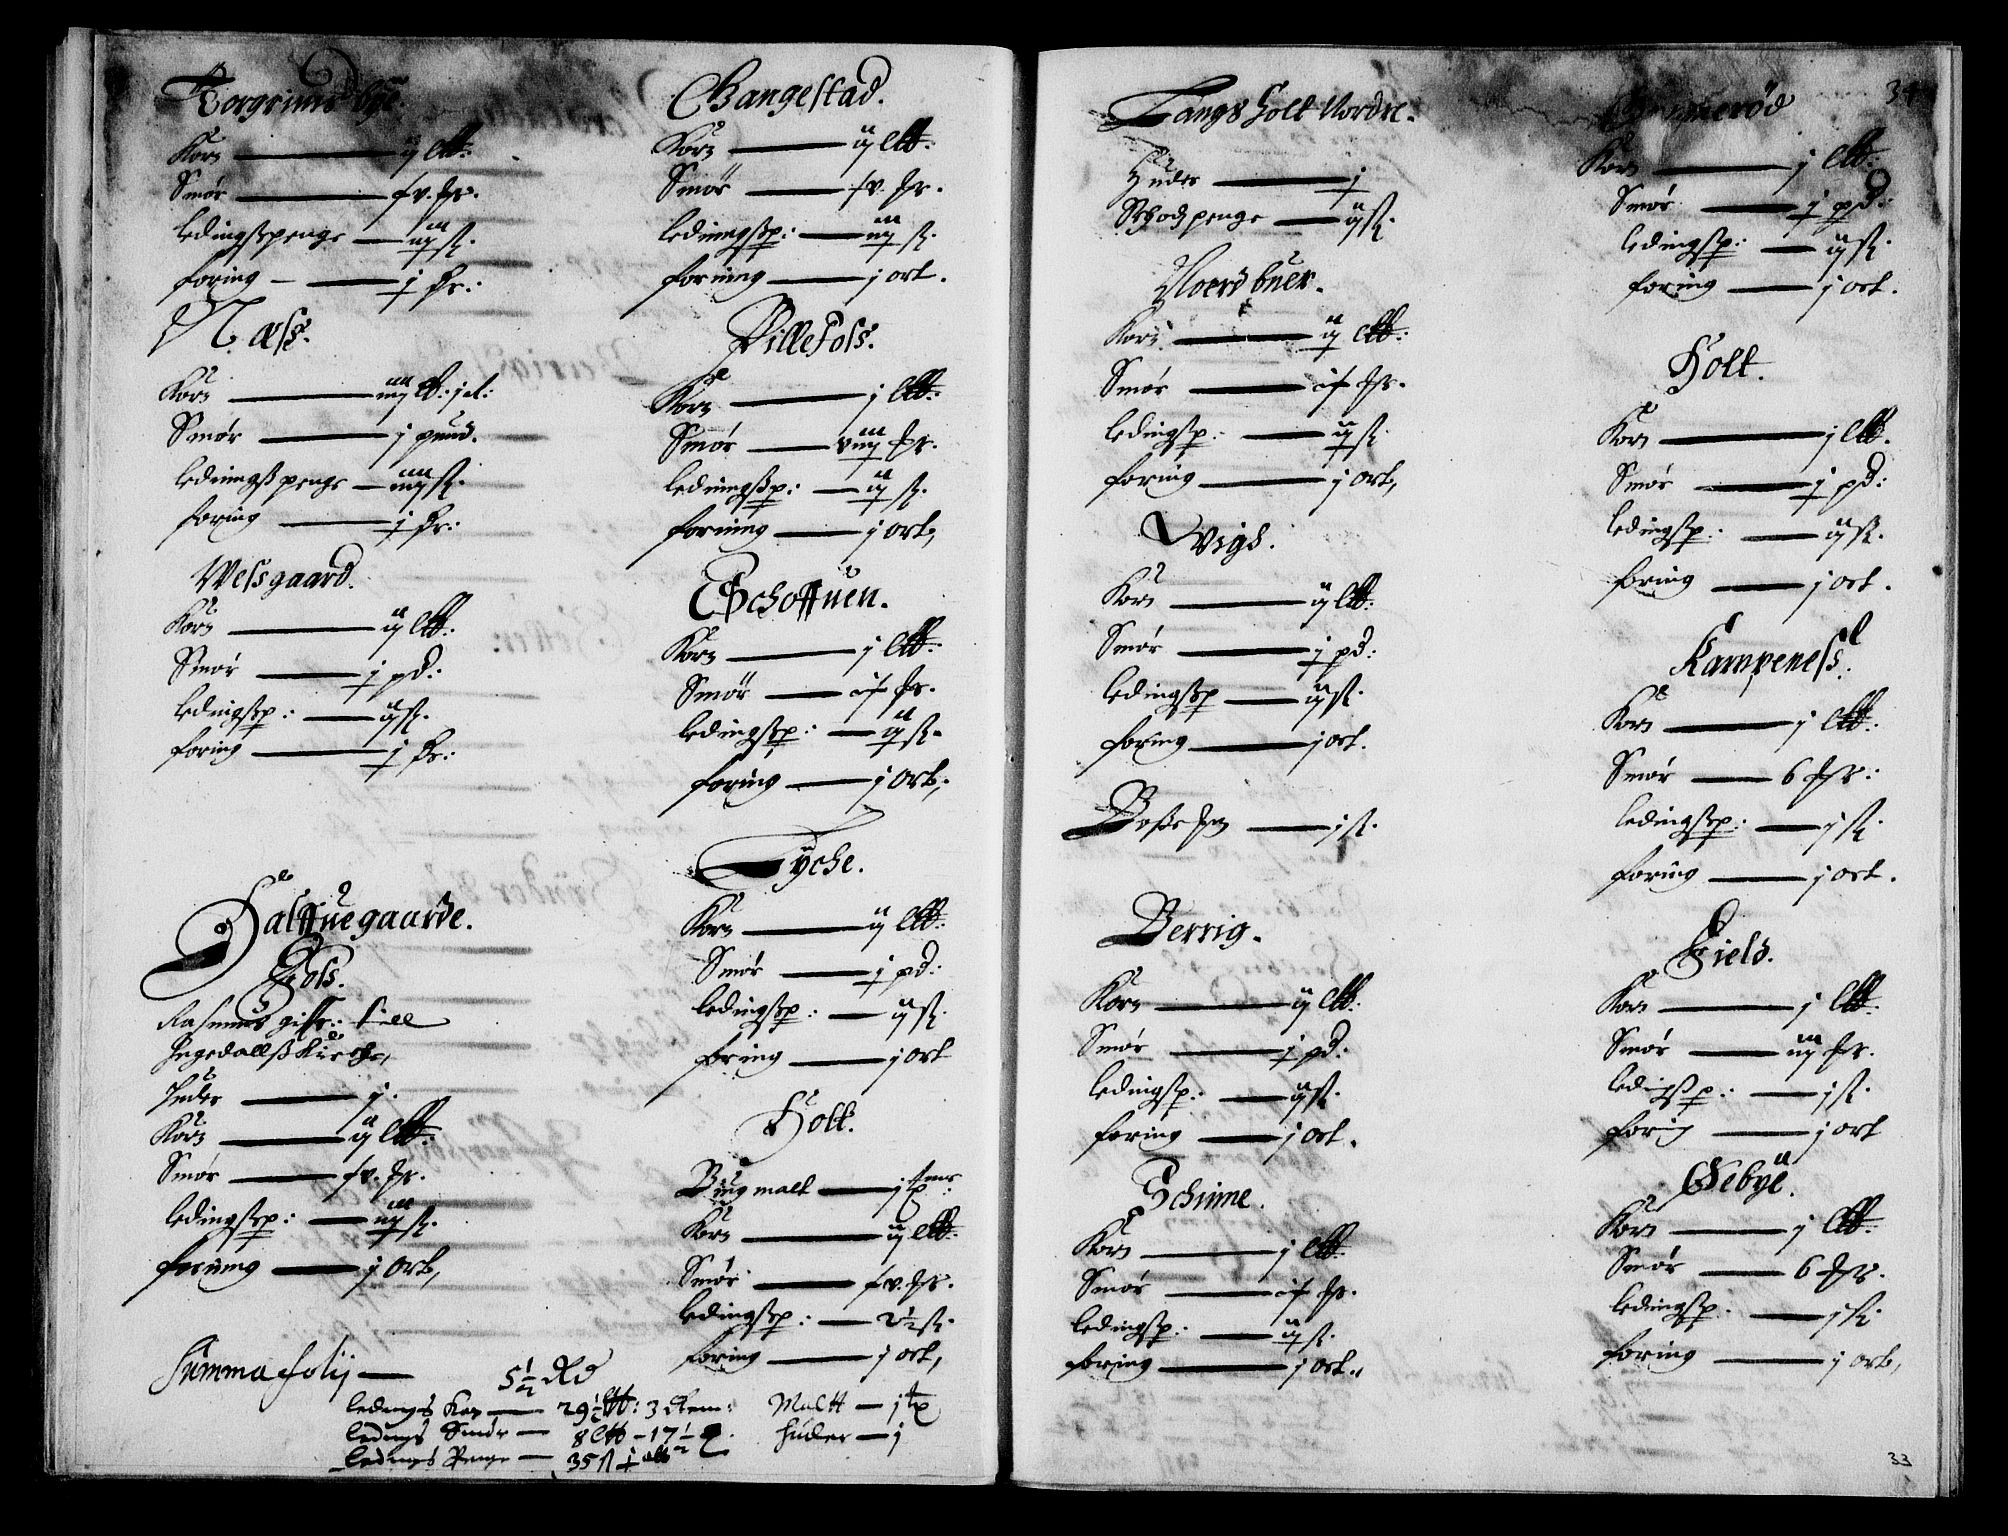 Torgrims bÿe.
Korn — ij ltt:
Smør — xv. hr.
ledingsspenge — iij ß.
foring — j hr:
Næss.
Korn — iiij lt: j sl:
Smør — j pund.
ledinngsspenge — iiij ß.
foring — j hr:
Wessgaard.
Korn — ij ltt:
Smør — j pd:
ledingssp: — ij ß.
foring — j hr:
Halffuegaarde.
Foss.
Rasmus giffr: till
Hegedallss Kircke,
Huder — j.
Korn — ij ltt:
Smør — xv. hr.
ledingssp: — iij ß.
foring — j ort,
Summa folij — 5½ Rd
ledings Korn — 29½ ltt: 3 Rem:
ledings Smør — 8 ltt – 17½
ledings Penge — 35 ß
Maltt — j tp
Huder — j
Bangestad.
Korn — ij ltt:
Smør — xv. hr.
ledinngssp: — iij ß.
forning — j ort.
Pillefoss.
Korn — j ltt:
Smør — viij hr.
ledinngssp: — ij ß.
forning — j ort,
Schoffuen.
Korn — j ltt:
Smør — ix hr.
ledingssp: — ij ß.
foring — j ort,
Tyche.
Korn — ij ltt:
Smør — j pd:
ledingssp: — ij ß.
foring — j ort
Holt.
Bijgmalt — j tp
Korn — ij ltt:
Smør — xv. hr.
ledingssp: — 2½ ß.
foring — j ort,
Langsholt Nordre.
Huder — j
Schodz penge — ij ß.
Noersbuer.
Korn — ij ltt:
Smør — ix hr.
ledingsp: — ij ß.
foring — j ort,
Wigh.
Korn — ij ltt:
Smør — j pd:
ledingssp — ij ß.
foring — j ort.
— j ß.
Berrig.
Korn — ij ltt:
Smør — j pd:
ledingssp: — ij ß.
foring — j ort.
Schime.
Korn — j ltt:
Smør — ix hr.
ledingsp: — ij ß.
foring — j ort.,
34
Korn — j ltt:
Smør — j pd:
ledingsp: — ij ß.
foring — j ort.
Holt.
Korn — j ltt.
Smør — j pd:
ledingsp: — ij ß.
foring — j ort.
Kampeness.
Korn — j ltt:
Smør — 6 hr:
ledingssp: — j ß.
foring — j ort.
Field.
Korn — j ltt:
Smør — iij hr.
ledingssp: — j ß.
foring — j ort
Gebÿe.
Korn — j ltt:
Smør — 6 hr.
ledingsp: — j ß:
foring — j ort,
33